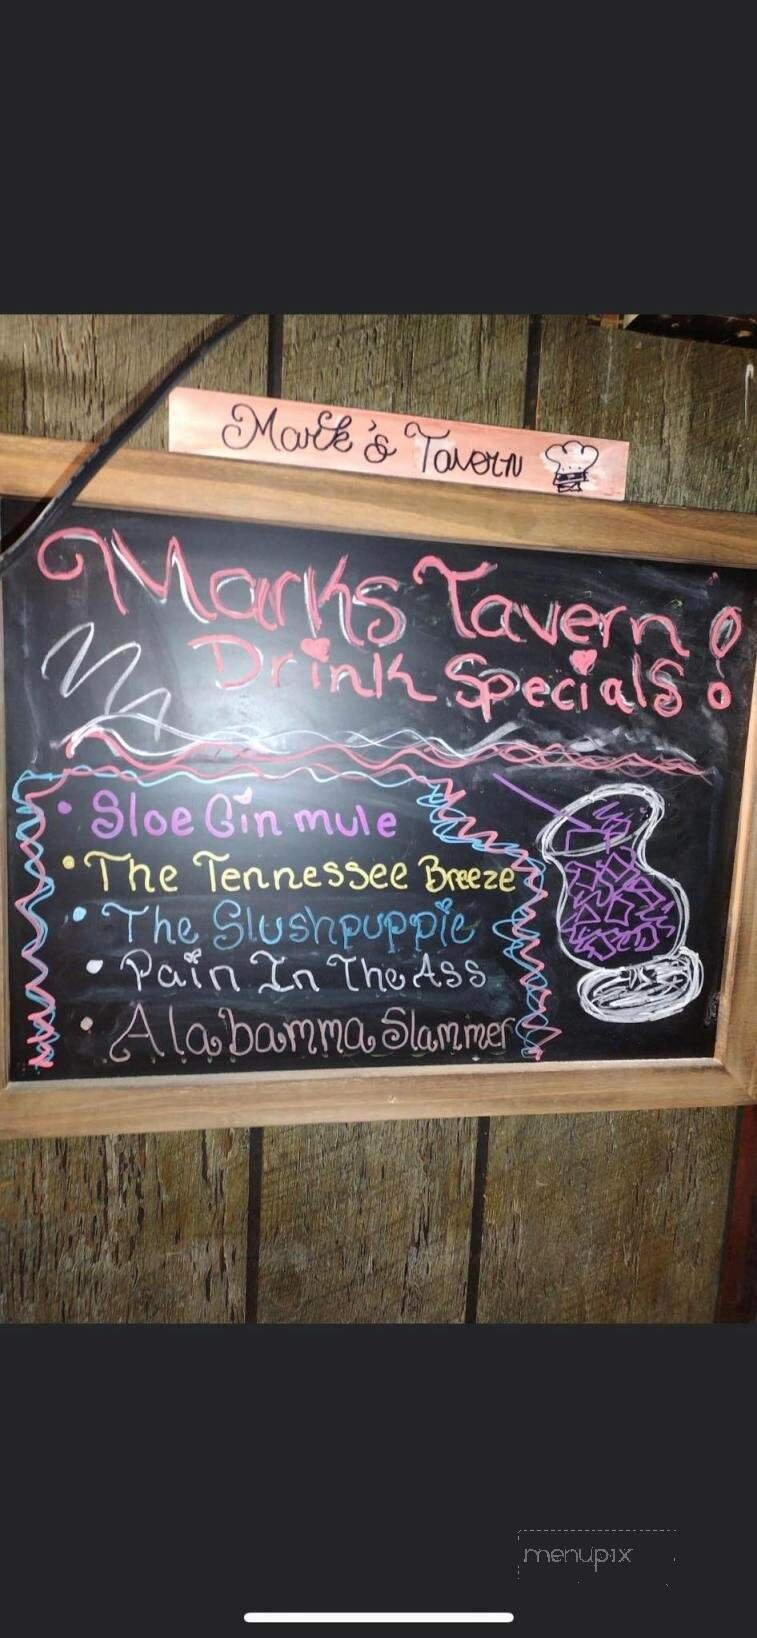 Mark's Tavern
Marks Tavern!
Drink Specials!
• Sloe Gin mule
• The Tennessee Breeze
• The Slushpuppie
• Pain In The Ass
• Alabamma Slammer
menupix